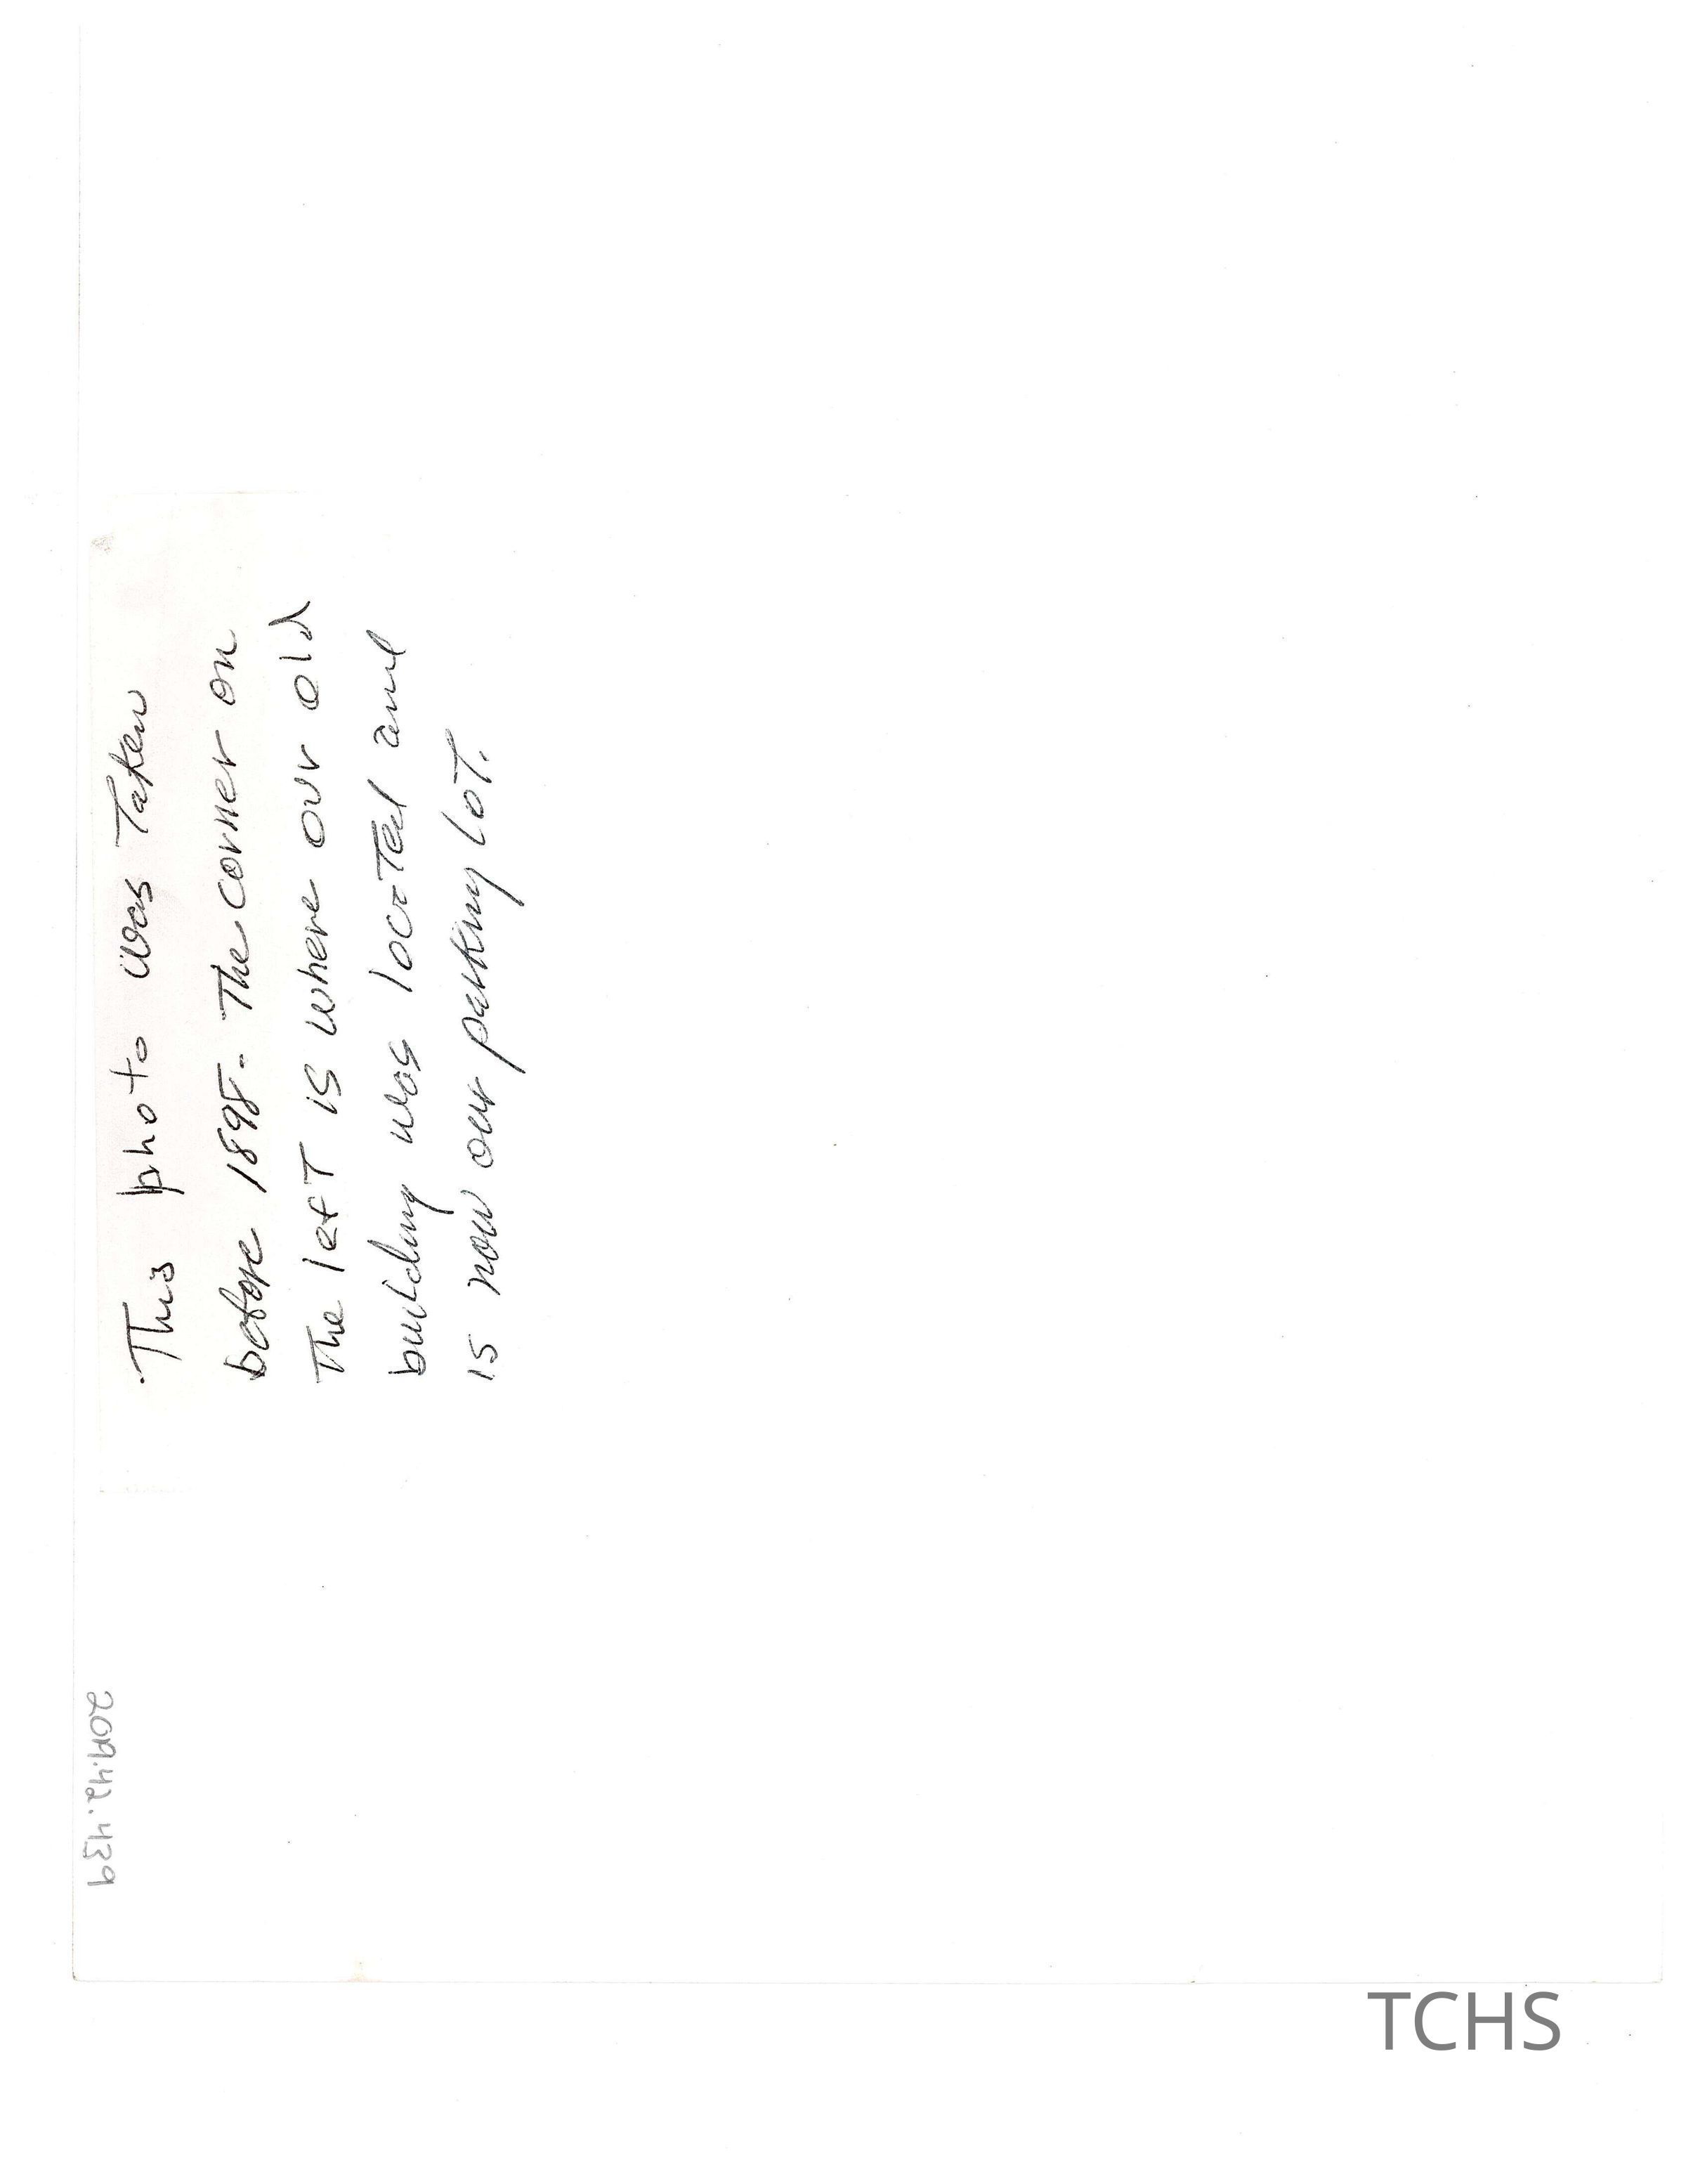 This photo was Taken
before 1898. The corner on
The left is where our old
building was located and
is now our parking lot.
TCHS